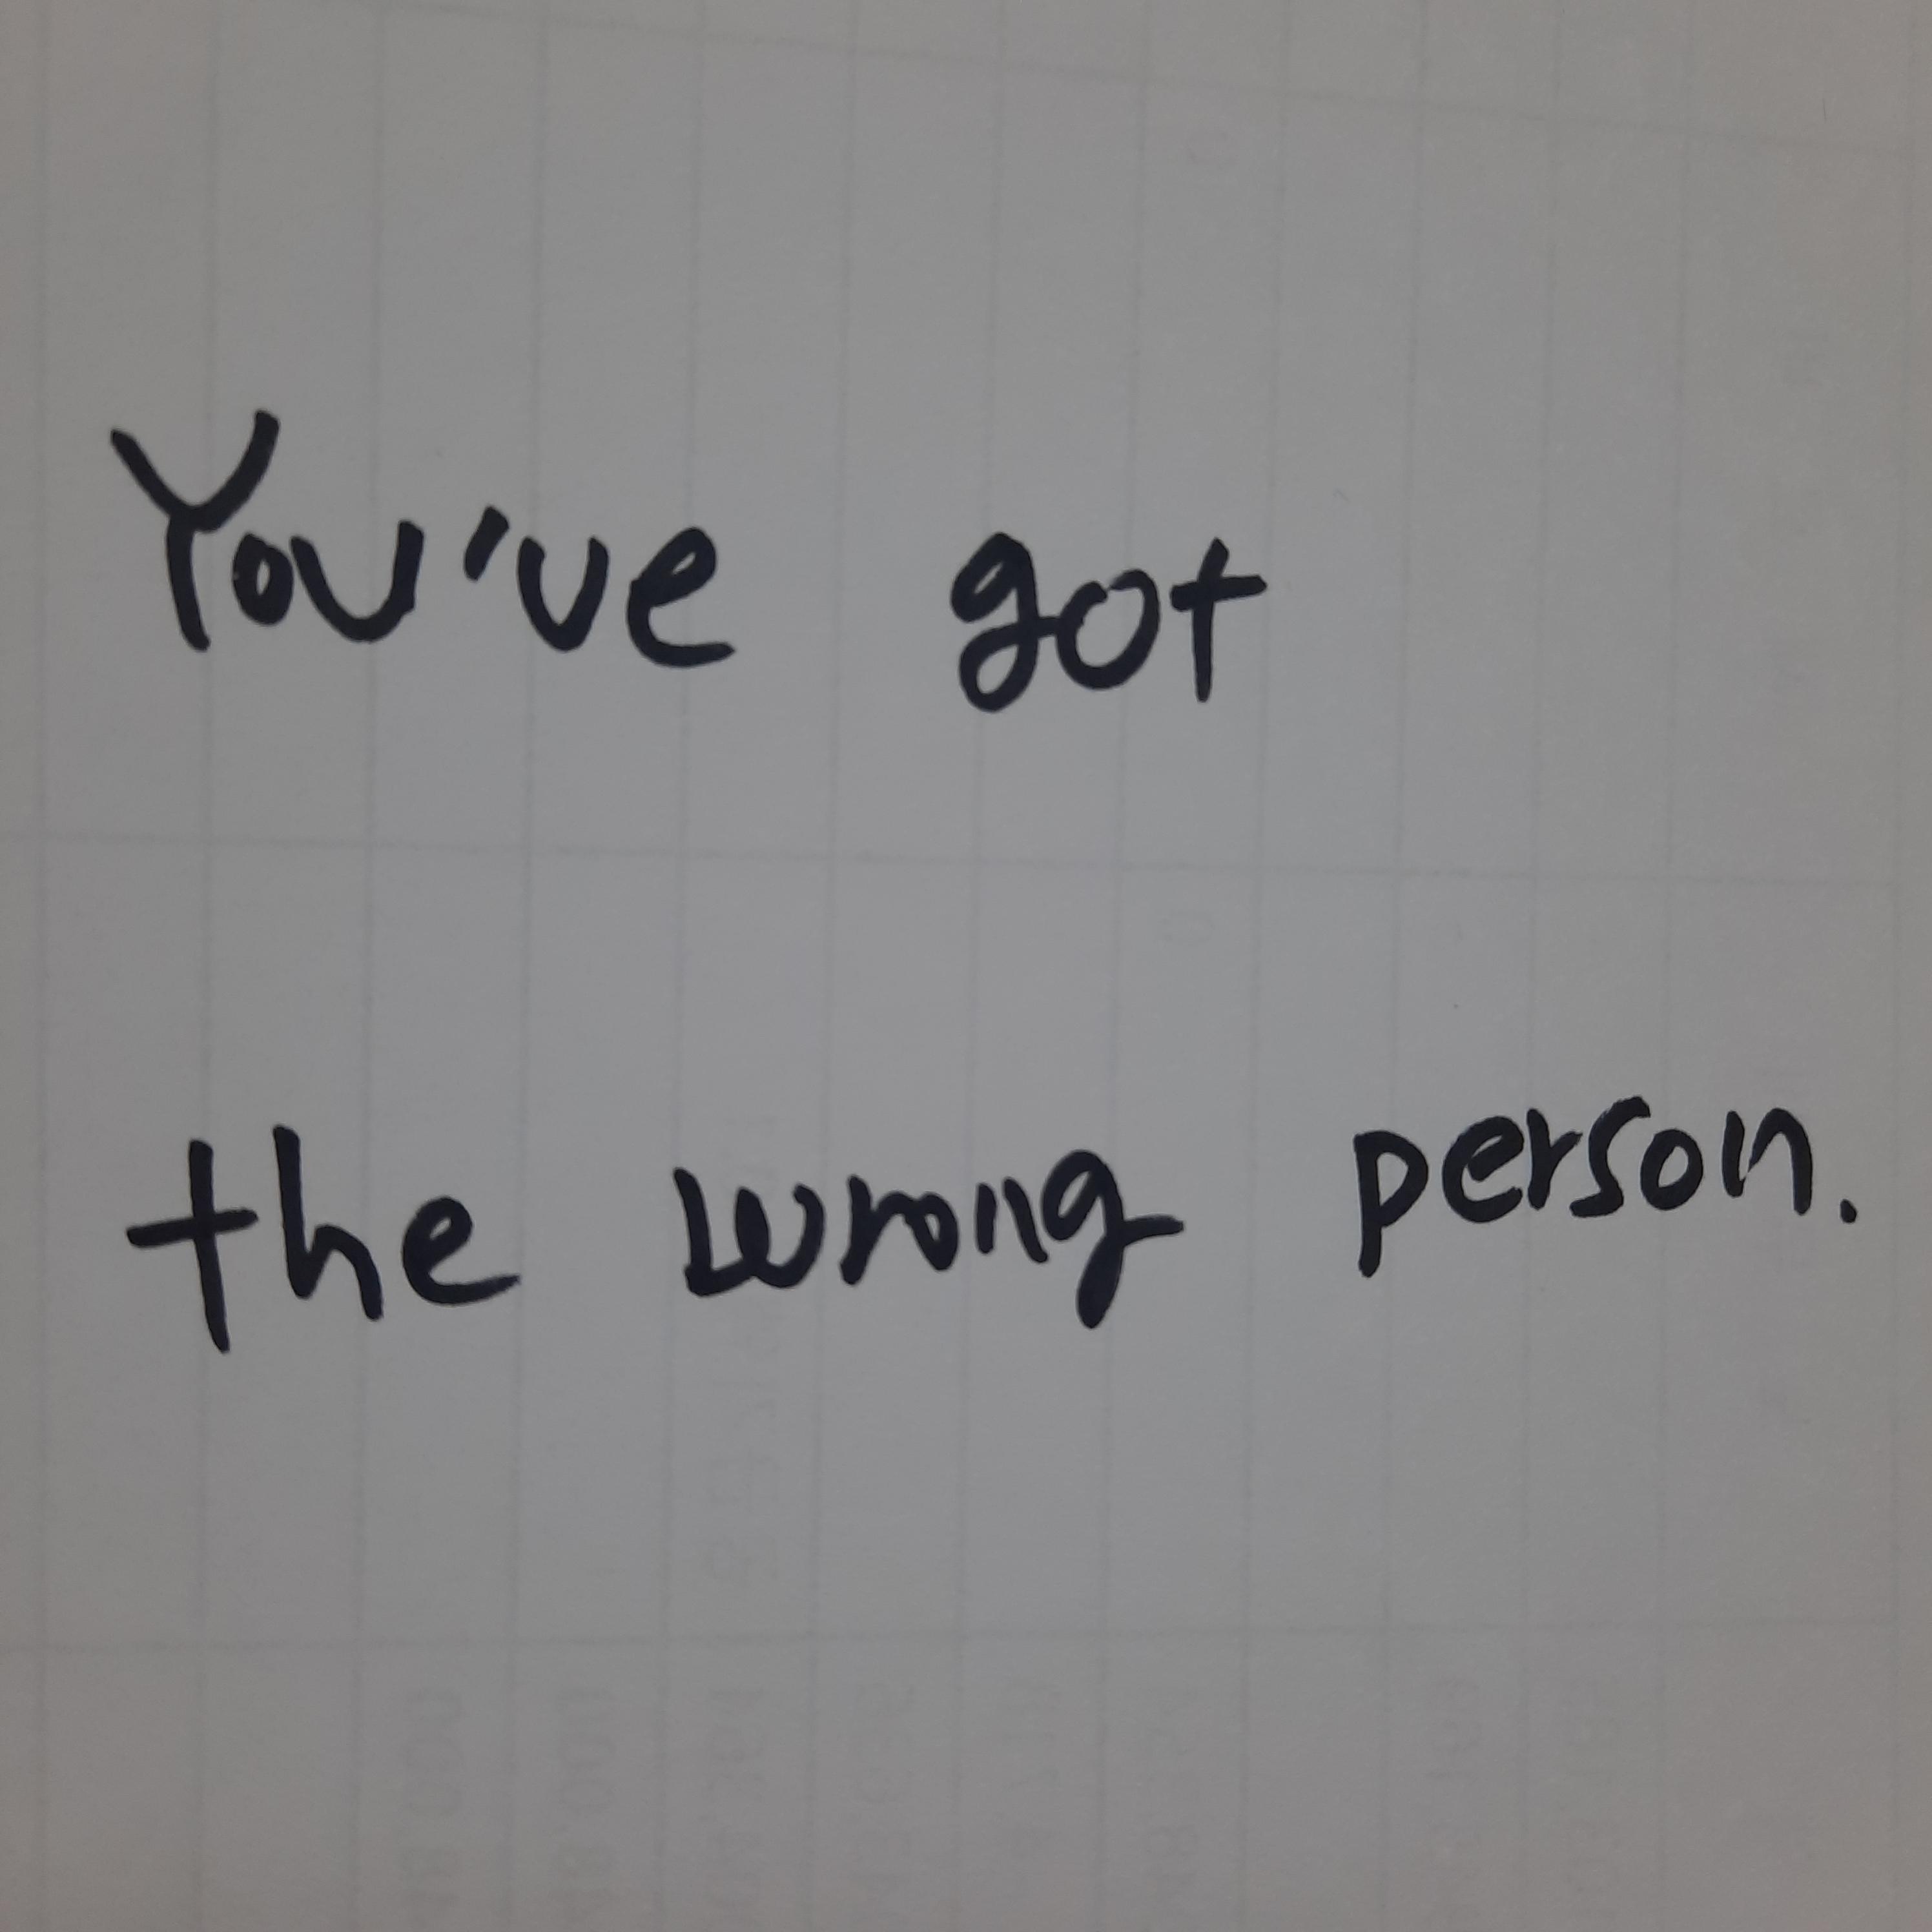 You've got
the wrong person.